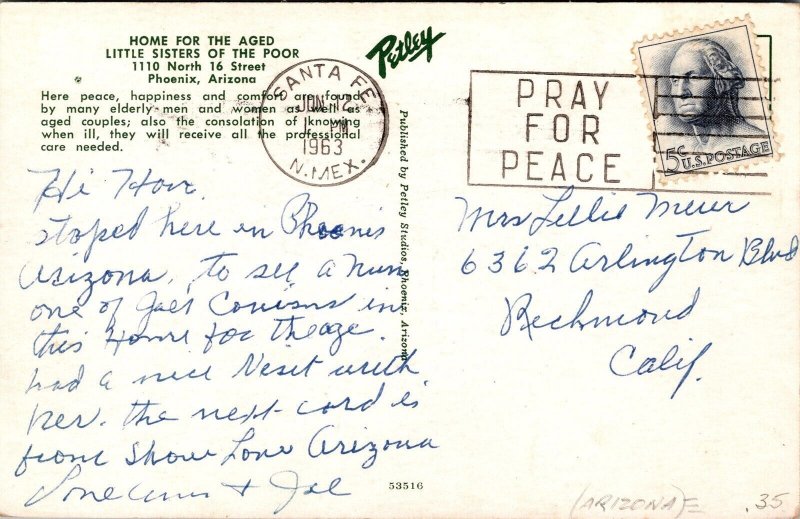 HOME FOR THE AGED
LITTLE SISTERS OF THE POOR
1110 North 16 Street
Phoenix, Arizona
Here peace, happiness and comfort are found
by many elderly men and women as well as
aged couples; also the consolation of knowing
when ill, they will receive all the professional
care needed.
Petley
SANTA FE
JUN 12
PM
1963
N. MEX.
PRAY
FOR
PEACE
5¢ U.S. POSTAGE
Published by Petley Studios, Phoenix, Arizona
Hi
stoped here in Phoenix
Arizona, to see a Nun
one of Joe's Cousins in
this Home for the age.
had a nice Vesit with
her. the next card is
from Show Lone Arizona
Love Ann + Joe
Mrs Lillie Meier
6362 Arlington Blvd
Richmond
Calif.
53516
(ARIZONA)=
.35